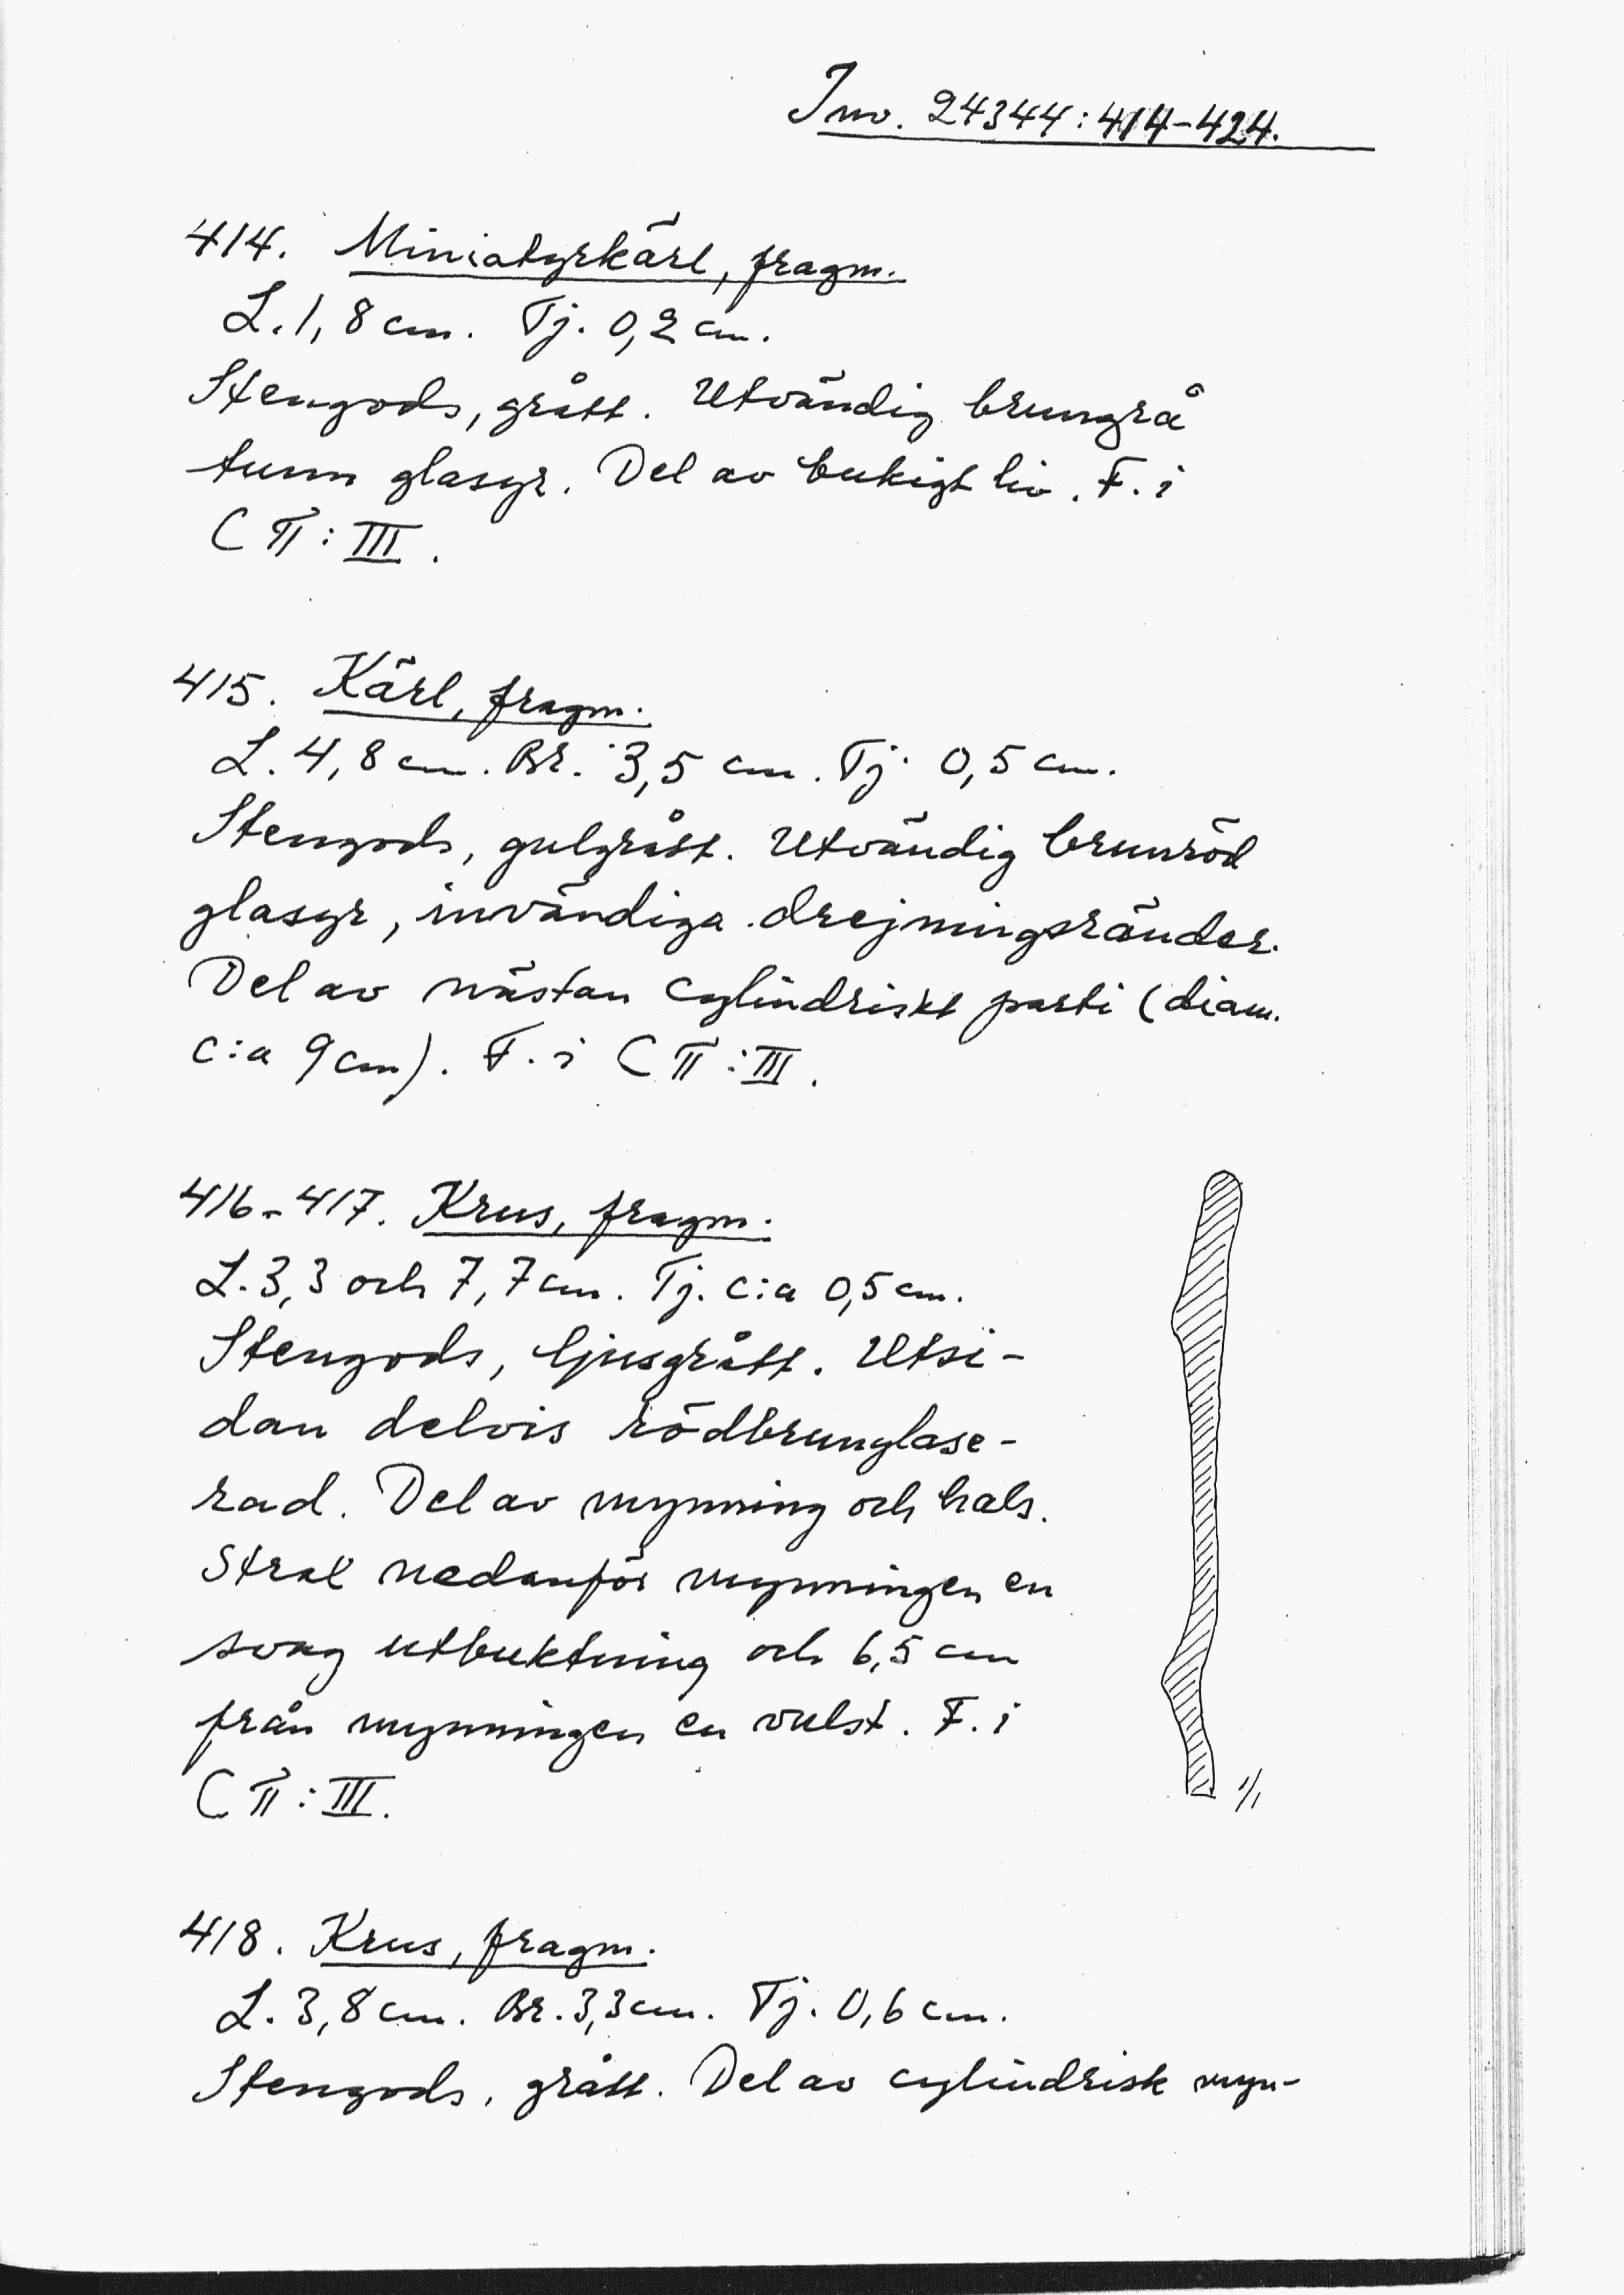 Inv. 24344:414-424.
414. Miniatyrkärl, fragm.
L. 1,8 cm. Tj. 0,2 cm.
Stengods, grått. Utvändig brungrå
tunn glasyr. Del av bukigt liv. F. i
C II:III.
415. Kärl, fragm.
L. 4,8 cm. Br. 3,5 cm. Tj. 0,5 cm.
Stengods, gulgrått. Utvändig brunröd
glasyr, invändiga drejningsränder.
Del av nästan cylindriskt parti (diam.
c:a 9 cm). F. i C II:III.
416-417. Krus, fragm.
L. 3,3 och 7,7 cm. Tj. c:a 0,5 cm.
Stengods, ljusgrått. Utsi-
dan delvis rödbrunglase-
rad. Del av mynning och hals.
Strax nedanför mynningen en
svag utbuktning och 6,5 cm
från mynningen en vulst. F. i
C II:III.
1/1
418. Krus, fragm.
L. 3,8 cm. Br. 3,3 cm. Tj. 0,6 cm.
Stengods, grått. Del av cylindrisk myn-